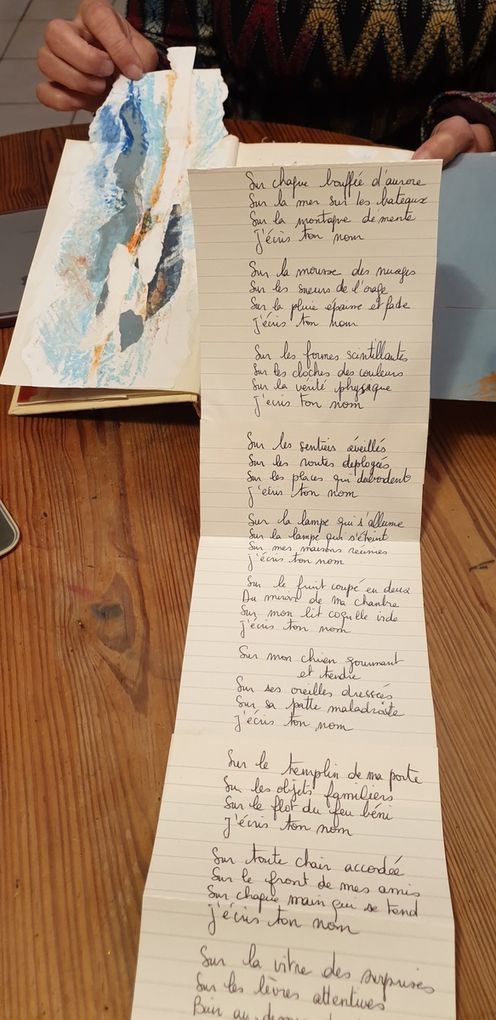 Sur chaque bouffée d'aurore
Sur la mer sur les bateaux
Sur la montagne demente
J'écris ton nom
Sur la mousse des nuages
Sur les sueurs de l'orage
Sur la pluie épaisse et fade
J'écris ton nom
Sur les formes scintillantes
Sur les cloches des couleurs
Sur la vérité physique
J'écris ton nom
Sur les sentiers éveillés
Sur les routes deployées
Sur les places qui debordent
J'écris ton nom
Sur la lampe qui s'allume
Sur la lampe qui s'éteint
Sur mes maisons reunies
J'écris ton nom
Sur le fruit coupé en deux
Du miroir de ma chambre
Sur mon lit coquille vide
J'écris ton nom
Sur mon chien gourmant
et tendre
Sur ses oreilles dressées
Sur sa patte maladroite
J'écris ton nom
Sur le tremplin de ma porte
Sur les objets familiers
Sur le flot du feu béni
J'écris ton nom
Sur toute chair accordée
Sur le front de mes amis
Sur chaque main qui se tend
J'écris ton nom
Sur la vitre des surprises
Sur les lèvres attentives
Bien au-dessus